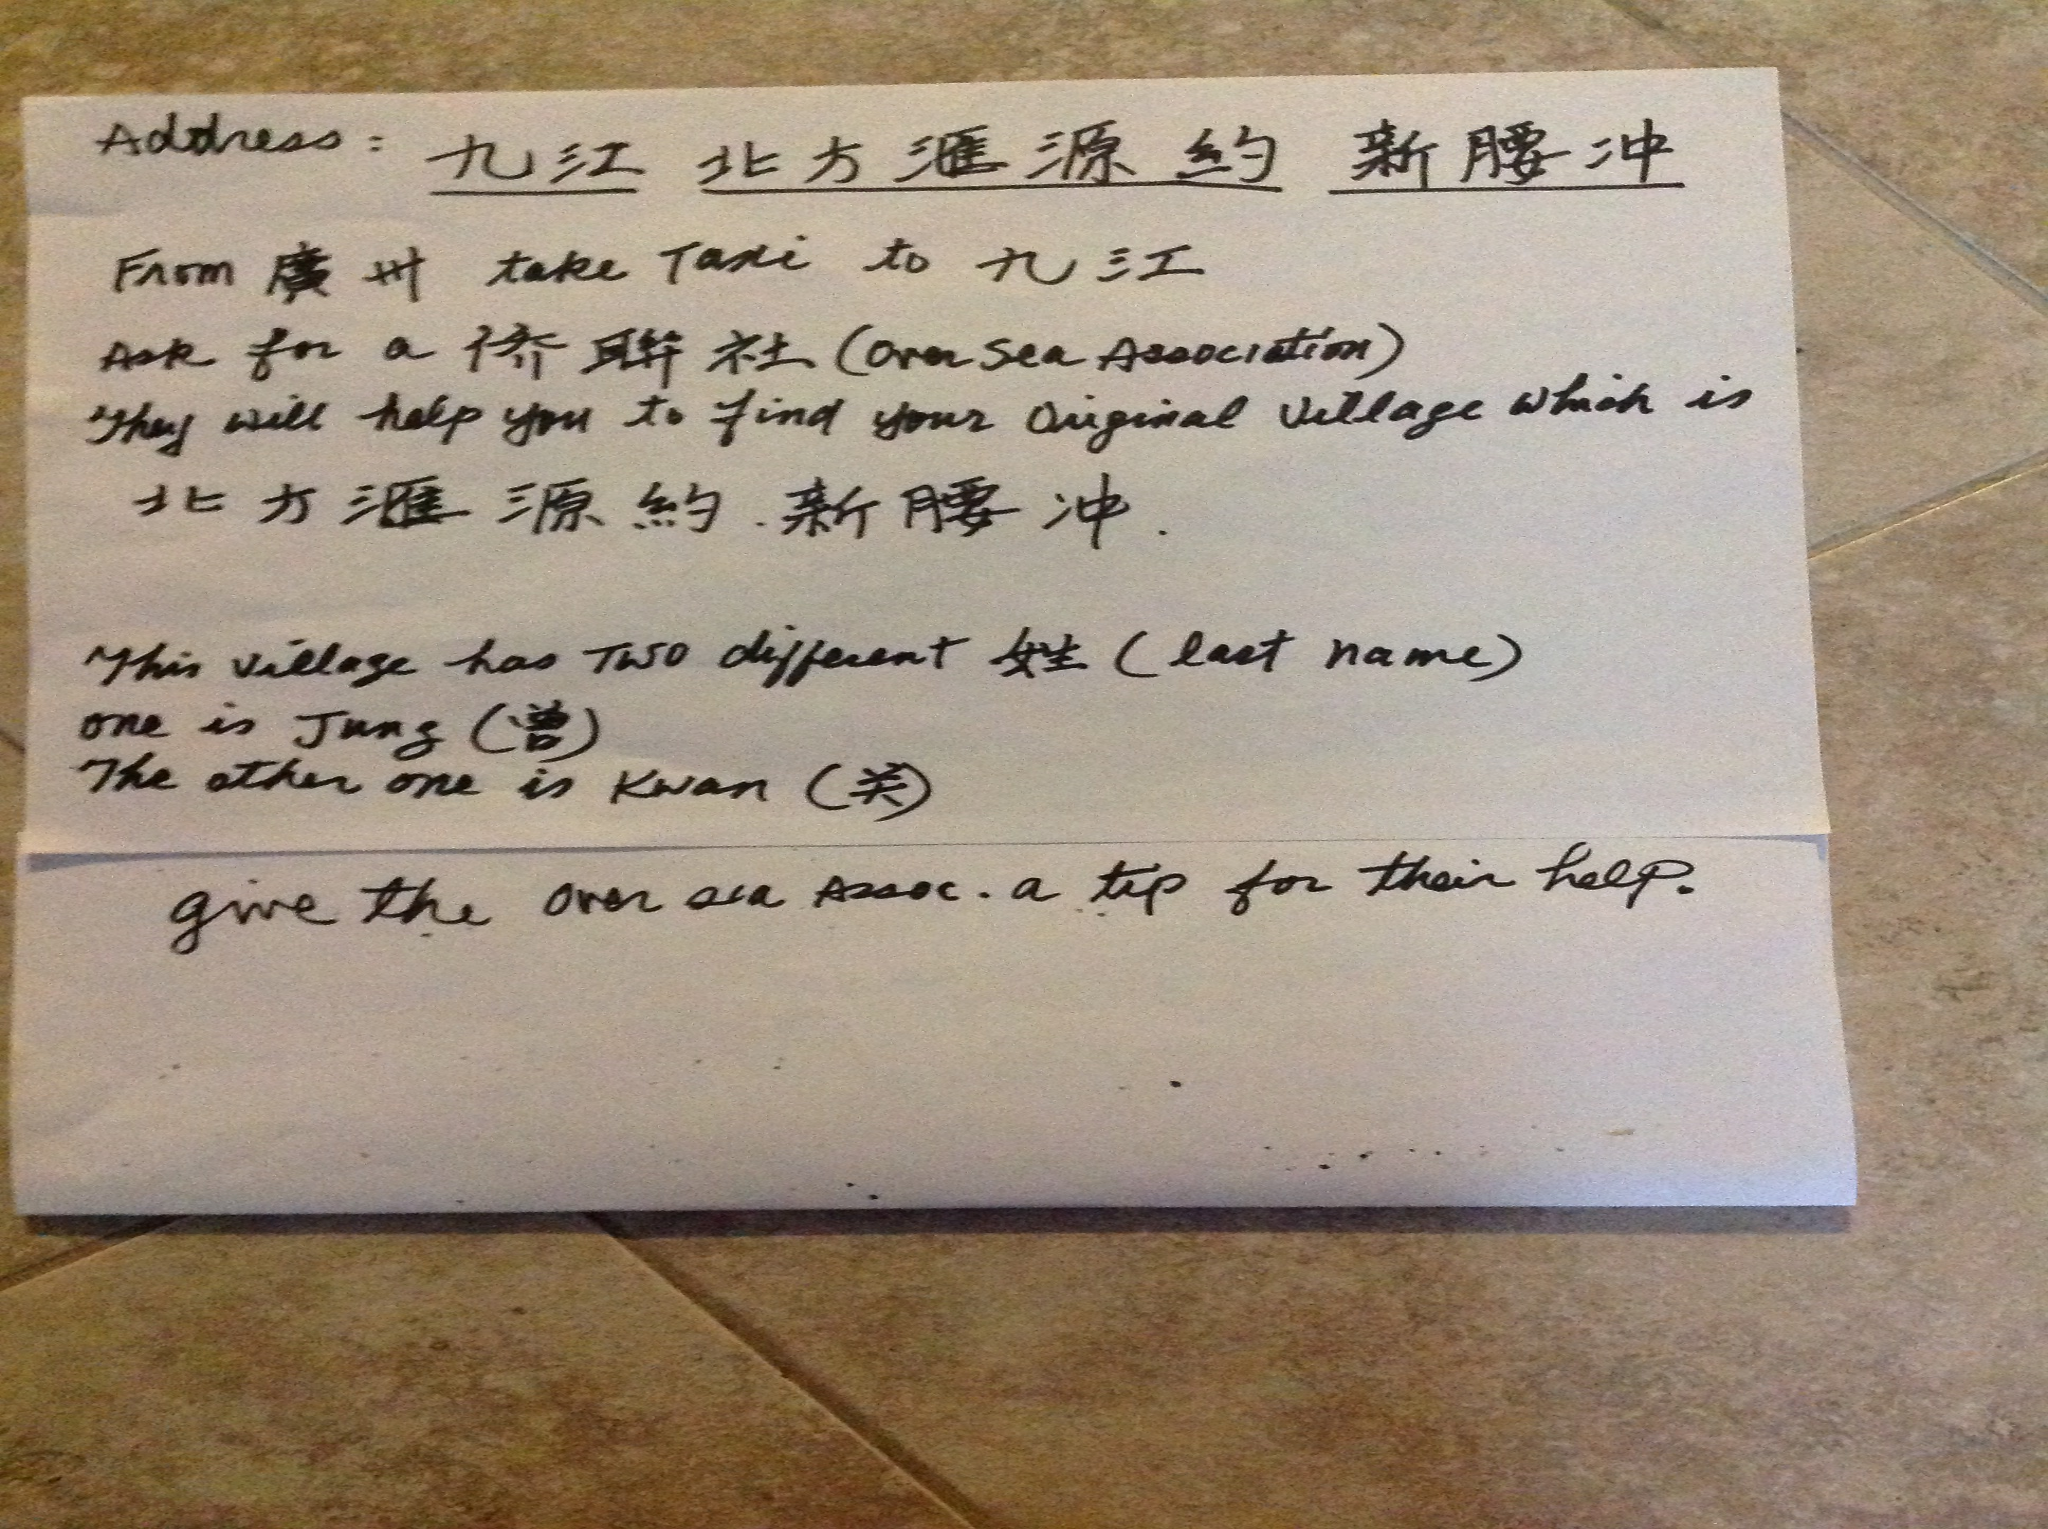 Address: 九江 北方滙源約 新腰冲
From 廣州 take Taxi to 九江
Ask for a 侨聯社 (Over Sea Association)
They will help you to find your Original Village which is
北方滙源約.新腰冲.
This village has Two different 姓 (last name)
one is Jung (曾)
The other one is Kwan (关)
give the over sea Assoc. a tip for their help.